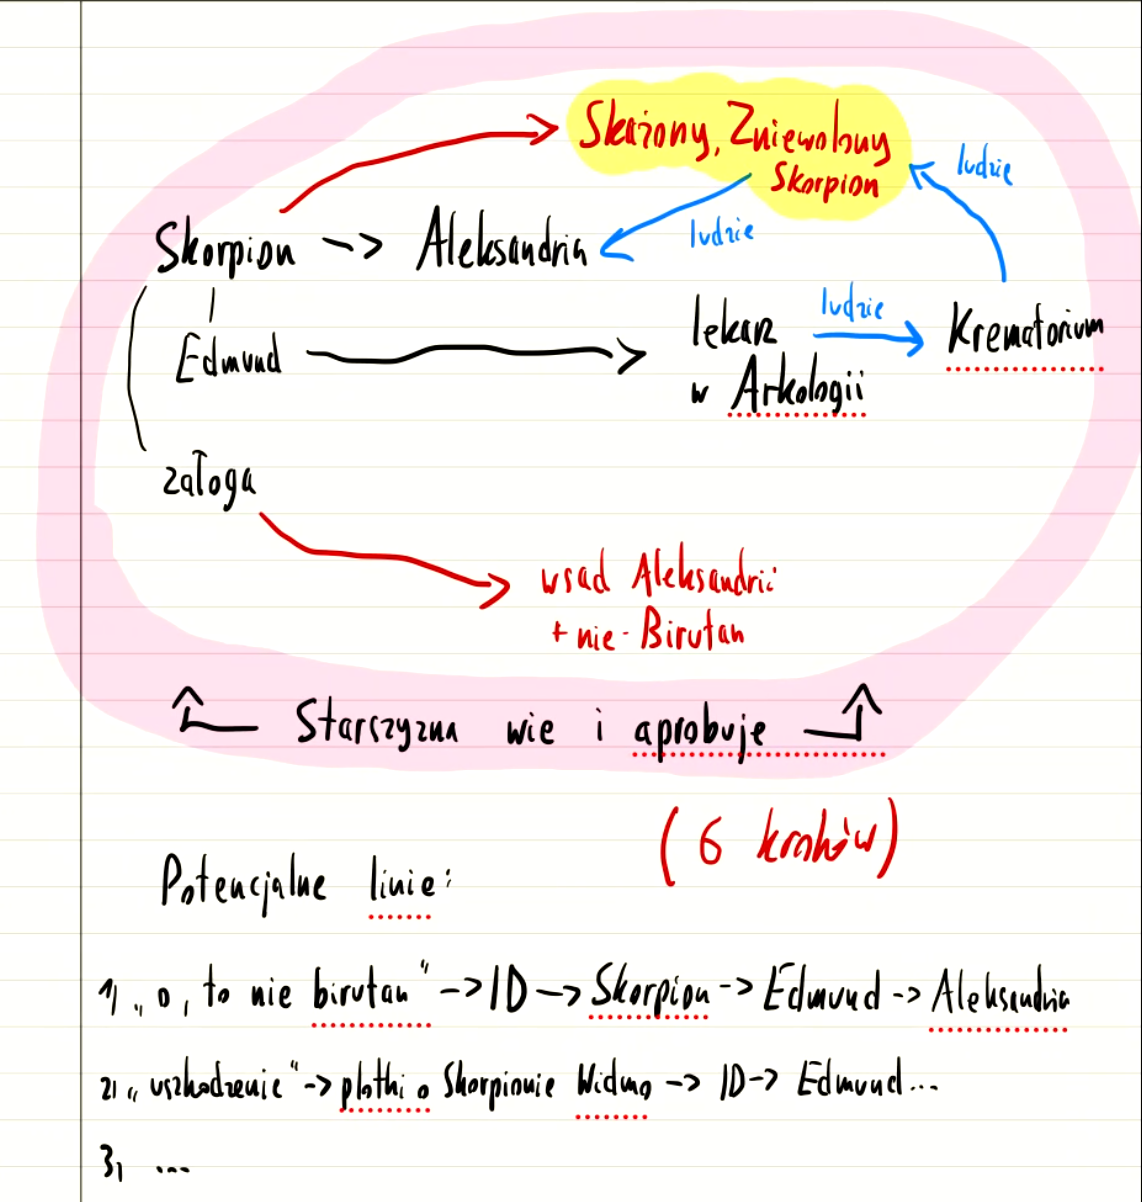 Skażony, Zniewolony
Skorpion
ludzie
Skorpion -> Aleksandria
ludzie
Edmund
lekarz
w Arkologii
ludzie
Krematorium
załoga
wsad Aleksandrii
+ nie-Birutan
Starszyzna wie i aprobuje
(6 kroków)
Potencjalne linie:
1, „o, to nie birutan" -> ID -> Skorpion -> Edmund -> Aleksandria
2, „uszkodzenie" -> plotki o Skorpionie Widmo -> ID -> Edmund...
3, ...